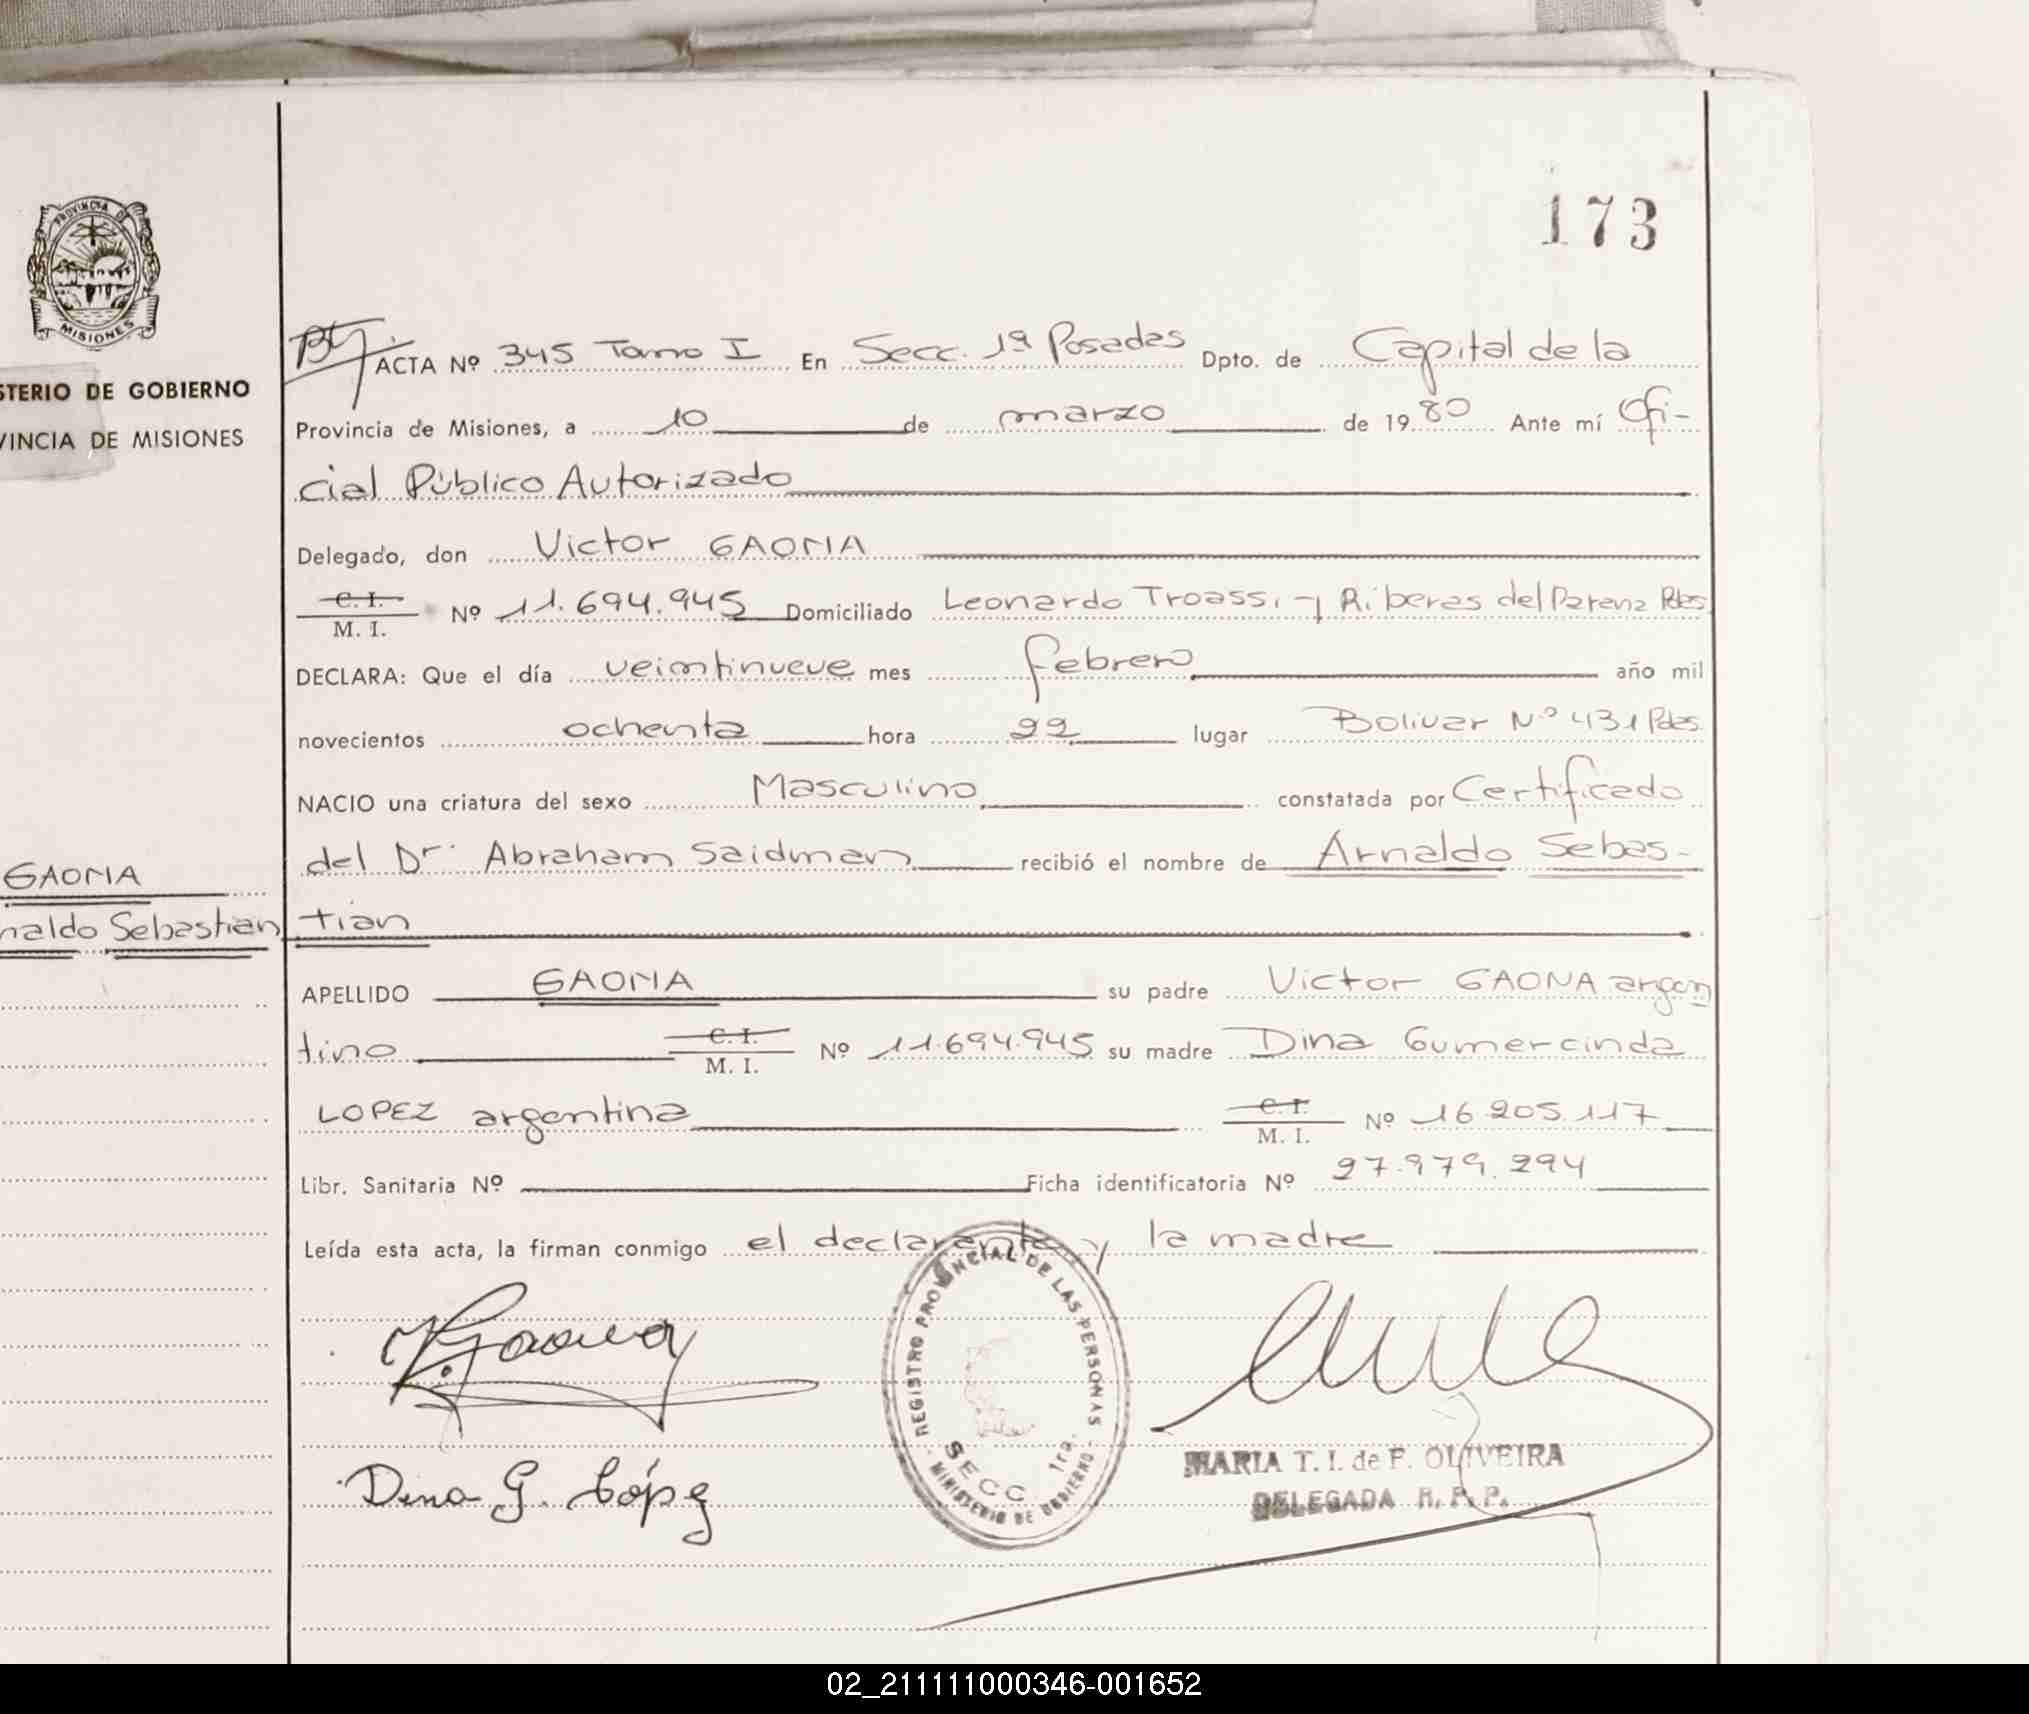 173
PROVINCIA DE
MISIONES
STERIO DE GOBIERNO
VINCIA DE MISIONES
GAONA
naldo Sebastian
ACTA Nº 345 Tomo I En Secc. 1ª Posadas Dpto. de Capital de la
Provincia de Misiones, a 10 de marzo de 1980 Ante mí Ofi-
cial Público Autorizado
Delegado, don Victor GAONA
C. I.
M. I. Nº 11.694.945 Domiciliado Leonardo Troassi y Riberas del Parana Pdas
DECLARA: Que el día veintinueve mes febrero año mil
novecientos ochenta hora 22 lugar Bolivar Nº 431 Pdas.
NACIO una criatura del sexo Masculino, constatada por Certificado
del Dr. Abraham Saidman recibió el nombre de Arnaldo Sebas-
tian
APELLIDO GAONA su padre Victor GAONA argen
tino C. I.
M. I. Nº 11.694.945 su madre Dina Gumercinda
LOPEZ argentina C. I.
M. I. Nº 16.205.117
Libr. Sanitaria Nº Ficha identificatoria Nº 27.979.294
Leída esta acta, la firman conmigo el declarante y la madre
V. Gaona
Dina G. López
REGISTRO PROVINCIAL DE LAS PERSONAS
SECC 1ra.
MINISTERIO DE GOBIERNO
MARIA T. I. de F. OLIVEIRA
DELEGADA R. P. P.
02_211111000346-001652